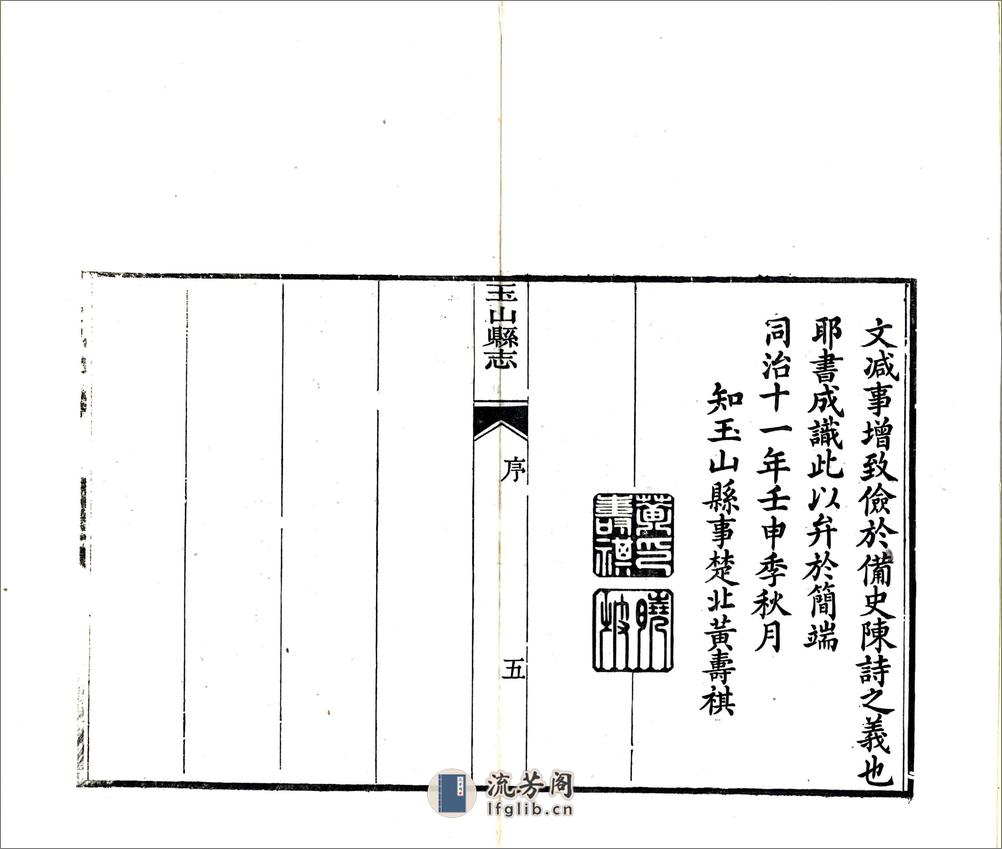 文减事增致儉於備史陳詩之義也
耶書成識此以弁於簡端
同治十一年壬申季秋月
知玉山縣事楚北黃壽祺
黃印壽祺
曉坡
玉山縣志
序
五
流芳阁
lfglib.cn